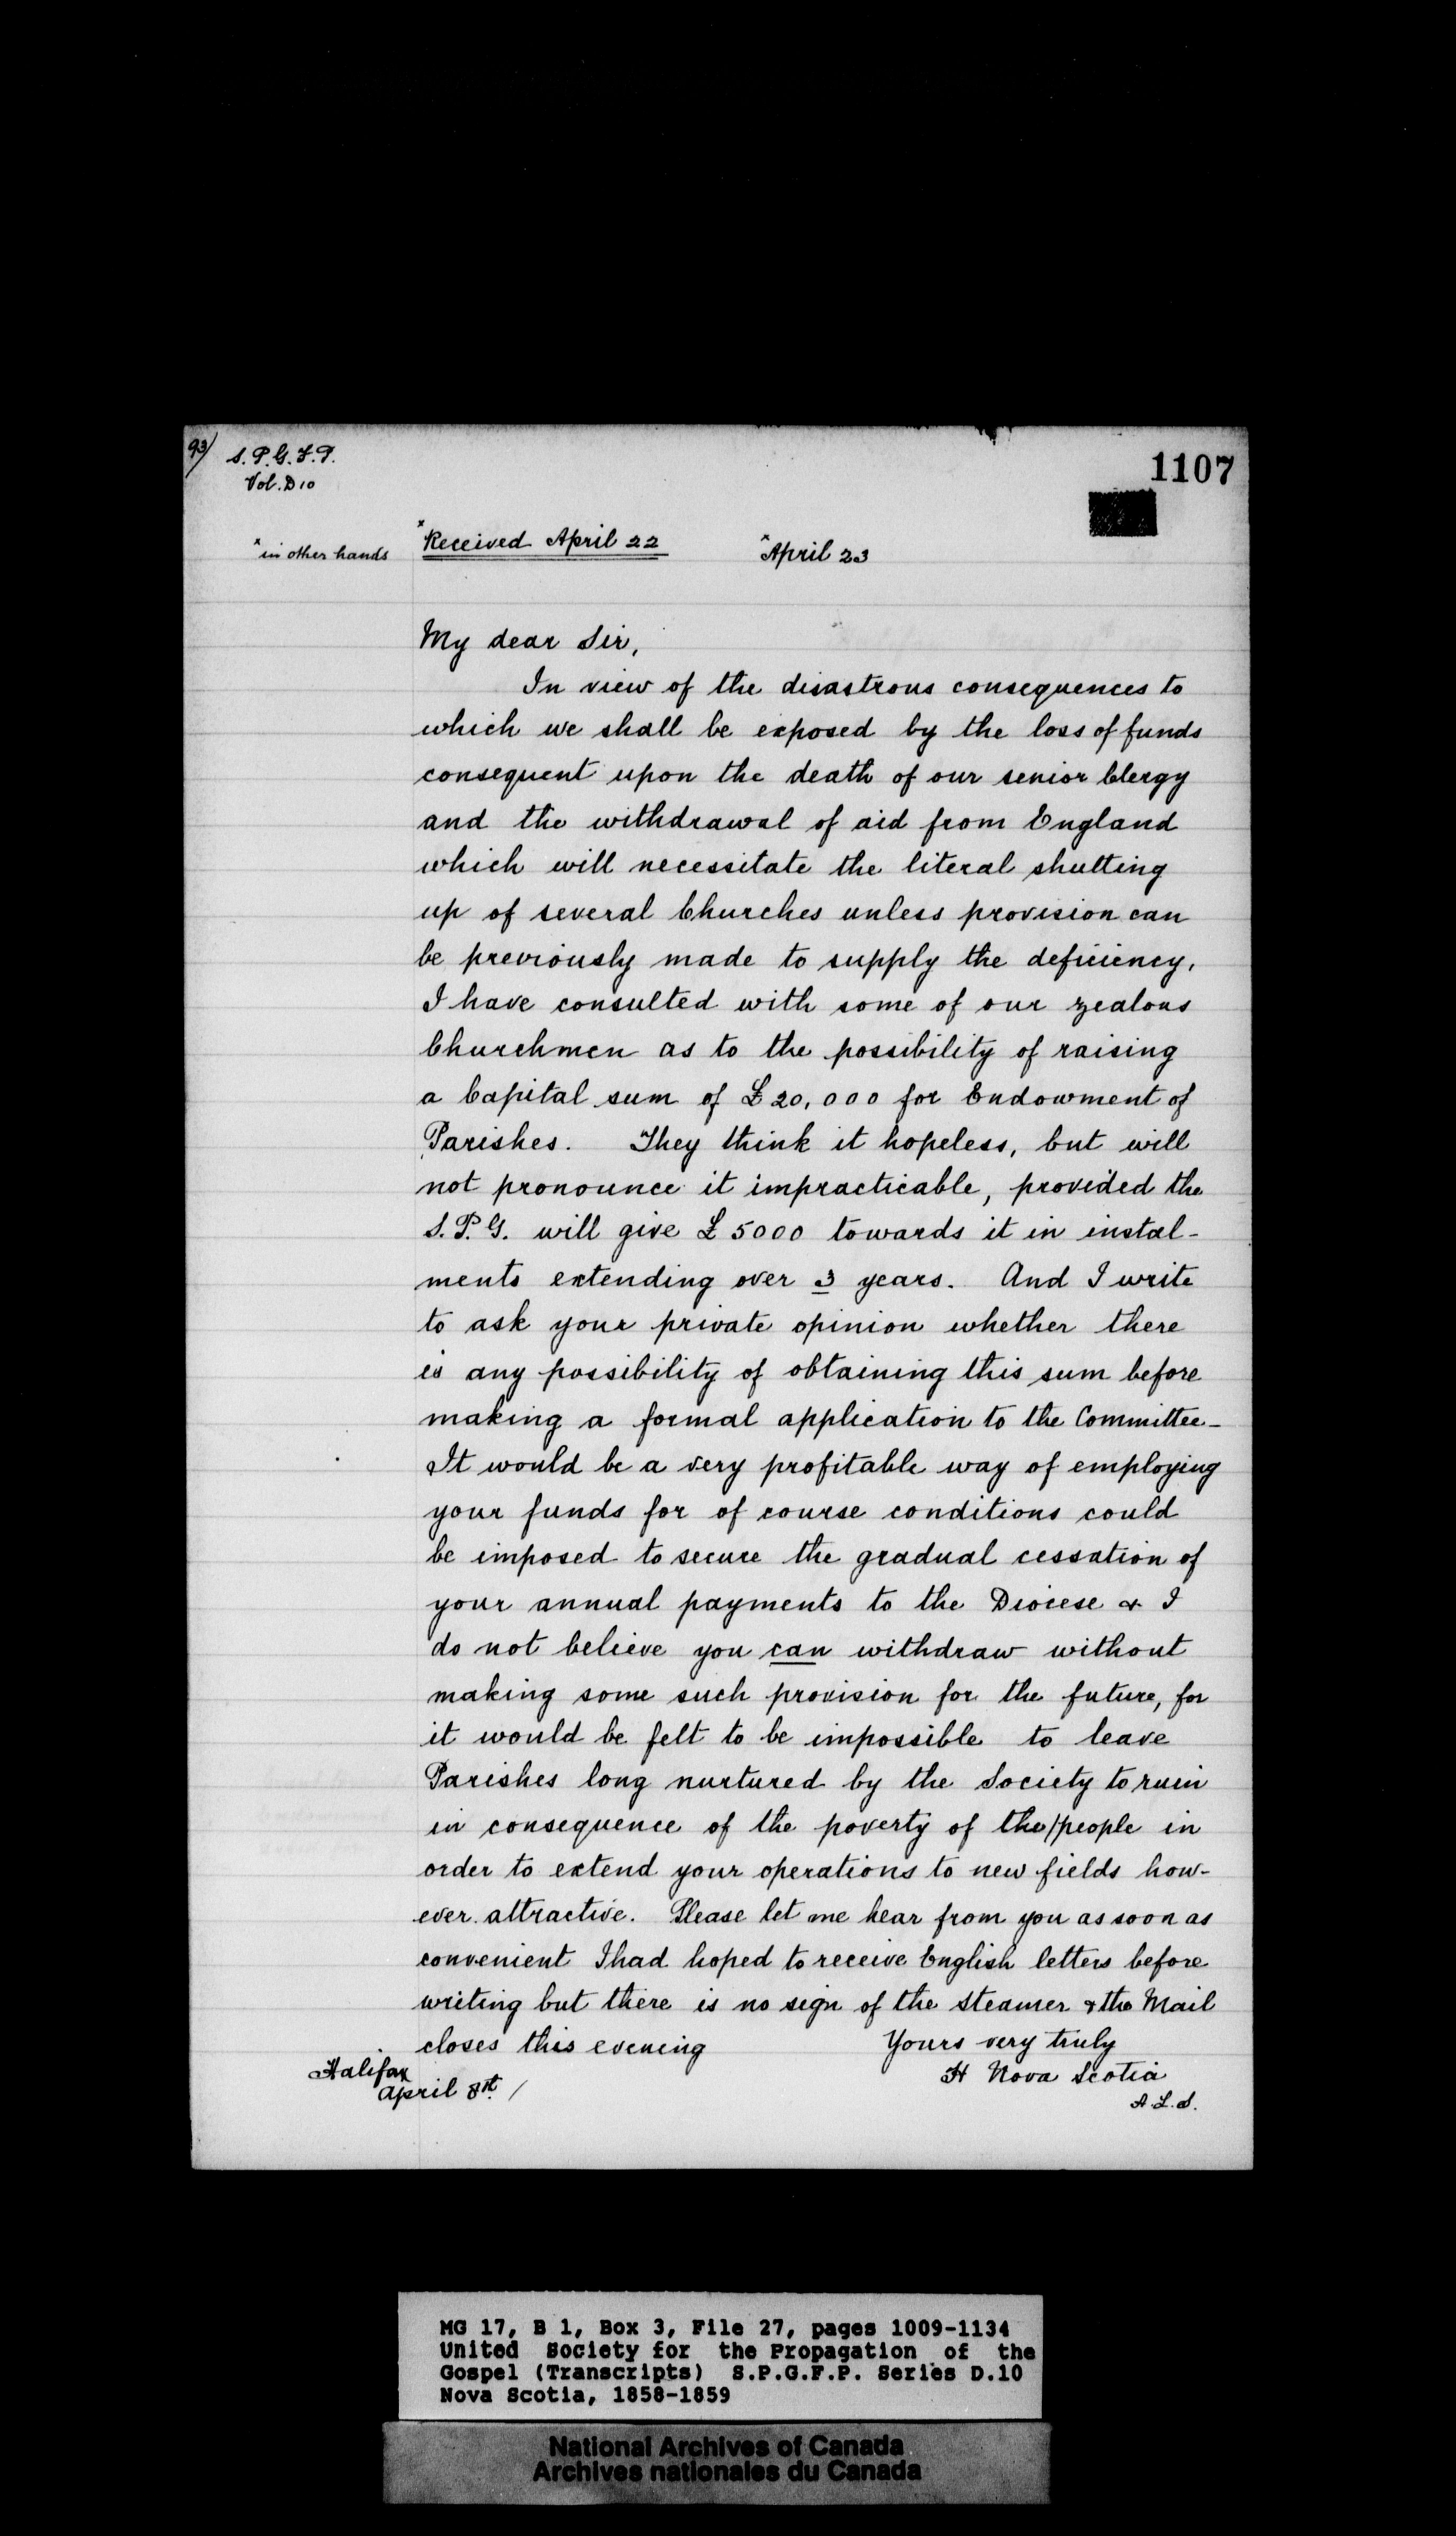 93/ S.P.G.F.P.
Vol. D 10
1107
x in other hands
x Received April 22
x April 23
My dear Sir,
In view of the disastrous consequences to
which we shall be exposed by the loss of funds
consequent upon the death of our senior Clergy
and the withdrawal of aid from England
which will necessitate the literal shutting
up of several Churches unless provision can
be previously made to supply the deficiency,
I have consulted with some of our zealous
Churchmen as to the possibility of raising
a Capital sum of £20,000 for Endowment of
Parishes. They think it hopeless, but will
not pronounce it impracticable, provided the
S.P.G. will give £5000 towards it in instal-
ments extending over 3 years. And I write
to ask your private opinion whether there
is any possibility of obtaining this sum before
making a formal application to the Committee-
It would be a very profitable way of employing
your funds for of course conditions could
be imposed to secure the gradual cessation of
your annual payments to the Diocese & I
do not believe you can withdraw without
making some such provision for the future, for
it would be felt to be impossible to leave
Parishes long nurtured by the Society to ruin
in consequence of the poverty of the/people in
order to extend your operations to new fields how-
ever attractive. Please let me hear from you as soon as
convenient I had hoped to receive English letters before
writing but there is no sign of the steamer & the Mail
closes this evening
Yours very truly
Halifax
H Nova Scotia
April 8th /
A.L.S.
MG 17, B 1, Box 3, File 27, pages 1009-1134
United Society for the Propagation of the
Gospel (Transcripts) S.P.G.F.P. Series D.10
Nova Scotia, 1858-1859
National Archives of Canada
Archives nationales du Canada